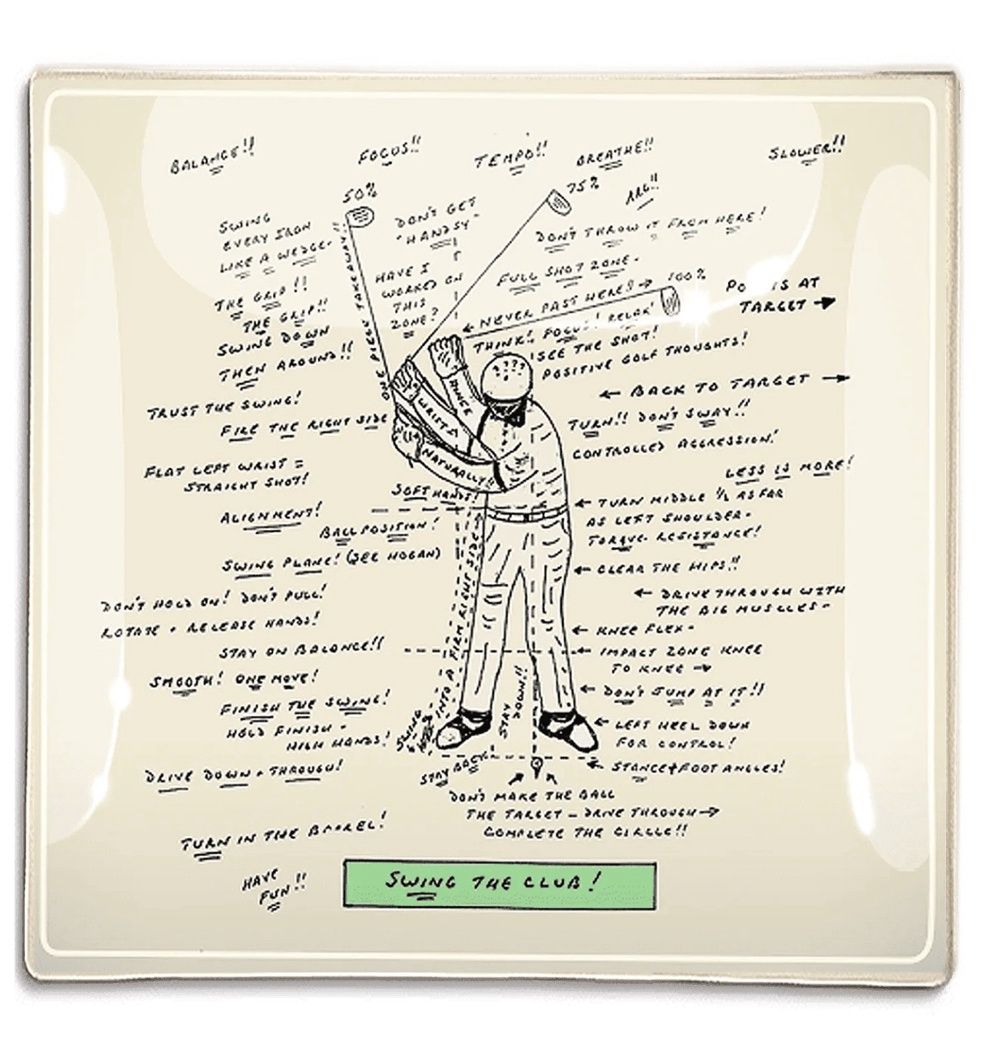 BALANCE!!
FOCUS!!
TEMPO!!
BREATHE!!
SLOWER!!
50%
75%
ARG!!
SWING
EVERY IRON
LIKE A WEDGE-
DON'T GET
"HANDSY"
DON'T THROW IT FROM HERE!
THE GRIP!!
THE GRIP!!
SWING DOWN
THEN AROUND!!
ONE PIECE TAKEAWAY!!
HAVE I
WORKED ON
THIS
ZONE?
FULL SHOT ZONE-
← NEVER PAST HERE!! → 100%
THINK! FOCUS! RELAX!
SEE THE SHOT!
POSITIVE GOLF THOUGHTS!
IS AT
TARGET →
← BACK TO TARGET →
????
TRUST THE SWING!
FIRE THE RIGHT SIDE
HINGE
WRISTS
NATURALLY!
TURN!! DON'T SWAY!!
CONTROLLED AGGRESSION!
LESS IS MORE!
FLAT LEFT WRIST =
STRAIGHT SHOT!
SOFT HANDS!
← TURN MIDDLE ½ AS FAR
AS LEFT SHOULDER-
TORQUE-RESISTANCE!
ALIGNMENT!
BALL POSITION!
SWING PLANE! (SEE HOGAN)
← CLEAR THE HIPS!!
DON'T HOLD ON! DON'T PULL!
ROTATE + RELEASE HANDS!
← DRIVE THROUGH WITH
THE BIG MUSCLES-
← KNEE FLEX-
STAY ON BALANCE!!
← IMPACT ZONE KNEE
TO KNEE →
SMOOTH! ONE MOVE!
← DON'T JUMP AT IT!!
FINISH THE SWING!
HOLD FINISH-
HIGH HANDS!
SWING
INTO A FIRM RIGHT SIDE
STAY
DOWN!!
← LEFT HEEL DOWN
FOR CONTROL!
DRIVE DOWN + THROUGH!
STAY BACK
← STANCE + FOOT ANGLES!
DON'T MAKE THE BALL
THE TARGET - DRIVE THROUGH →
COMPLETE THE CIRCLE!!
TURN IN THE BARREL!
HAVE
FUN!!
SWING THE CLUB!